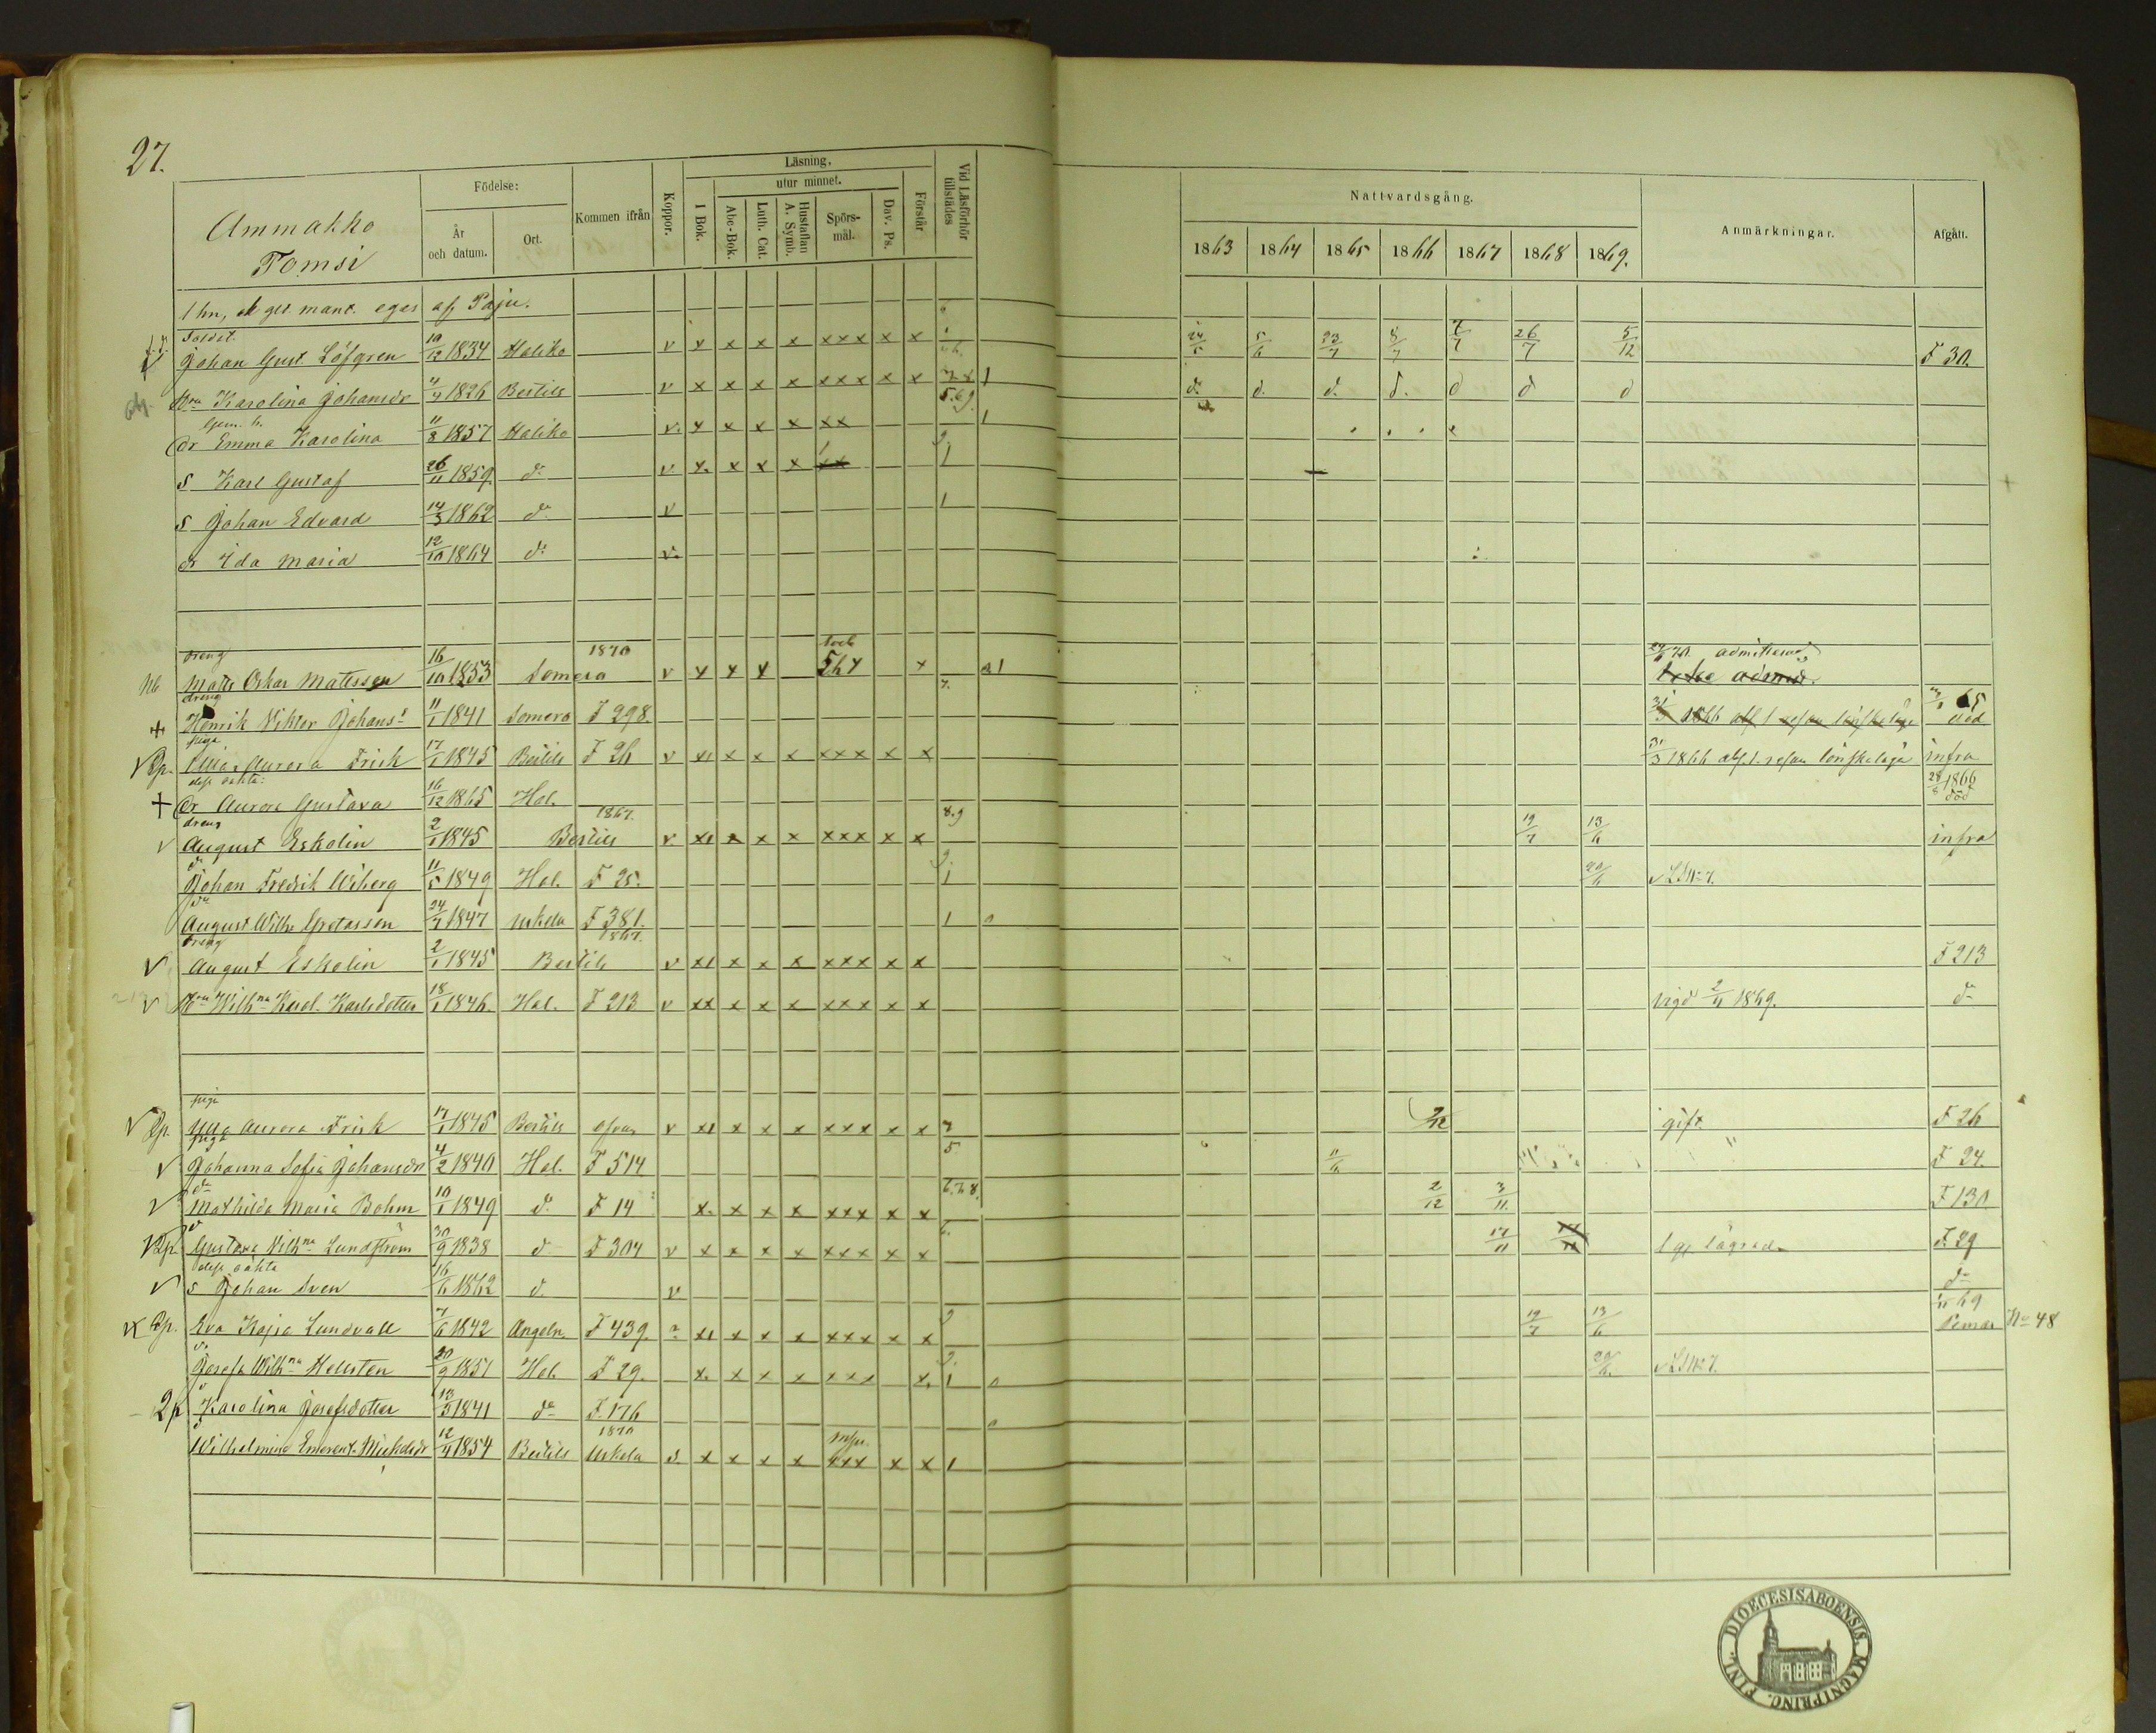 27.
Ammakko
Tomsi
Födelse:
År och datum.
Ort.
Kommen ifrån
Koppor.
Läsning,
utur minnet.
I Bok.
Abc-Bok.
Luth. Cat.
Hustaflan A. Symb.
Spörs-mål.
Dav. Ps.
Förstår
Vid Läsförhör tillstädes
Nattvardsgång.
1863 1864 1865 1866 1867 1868 1869.
Anmärkningar.
Afgått.
1 hn, mant. eges af Paju.
Soldat.
Johan Gust. Löfgren 10/12 1834 Haliko v x x x x xxx x x 24/5 5/6 23/7 8/7 7/7 26/7 5/12 F 30.
Hru Karolina Johansdr 4/4 1826 Bertils v x x x x xxx x x 1 d: d. d. d. d d d
Dr Emma Karolina 11/8 1857 Haliko v. x x x x xx 1
S Karl Gustaf 26/11 1859 d: v x. x x x xx 1
S Johan Edvard 14/3 1862 d: v 1
dr Ida Maria 12/10 1864 d: v.
dreng 1870
Nb Matts Oskar Mattsson 16/10 1853 Somero v x x x x 1 admitterad
dreng
+ Henrik Viktor Johans: 11/1 1841 Somero F 298. 7. 65 död
piga
v Rp. Ulla Aurora Frisk 17/1 1845 Bertils F 26 v xx x x x xxx x x 31/3 1866 abs. 1. resan lönskaläge infra
dess oäkta:
+ Dr Aurora Gustava 16/12 1865 Hal. 28/8 1866 död
dreng 1867. 8.9
v August Eskolin 2/1 1845 Bertils v xx x x x xxx x x 19/7 13/6 infra
Johan Fredrik Wiberg 11/5 1849 Hal. F 25. 1 20/6
August Wilh. Gustafsson 24/7 1847 Uskela F 381. 1 0
dreng 1867.
v August Eskolin 2/1 1845 Bertils v xx x x x xxx x x F 213
v Hru Wilhna Karol. Karlsdotter 18/1 1846. Hal. F 213 v xx x x x xxx x x vigd 2/11 1869. d:
piga
v Rp. Ulla Aurora Frisk 17/1 1845 Bertils ofvan v xx x x x xxx x x 7 2/12 gift. F 26
piga
v Johanna Sofia Johansdr 4/2 1840 Hal. F 514 5 11/6 F 24.
v Mathilda Maria Bohm 10/1 1849 d: F 14 x. x x x xxx x x 6.7.8. 2/12 3/11. F 130
v Rp. Gustava Vilhna Lundström 30/9 1838 d F 304 v x x x x xxx x x 6. 17/11 1 g. lägrad. F. 29
dess oäkta
v S Johan Sven 16/6 1862 d. v d:
Rp. Eva Kajsa Lundvall 7/6 1842 Angeln. F 439. x x x x xxx x x 9 19/7 13/6 69 Pemar No 48
Josefa Wilhna Hellsten 20/9 1851 Hal. F 29. x. x x x xxx x. 1 0 20/6.
Karolina Josefsdotter 13/3 1841 do F. 176 0
1870
Wilhelmina Emerent. Mickelsdr 12/4 1854 Bertils Uskela x x x x xxx x x 1
DIOECESIS ABOENSIS. MAGNI PRINC. FINL.